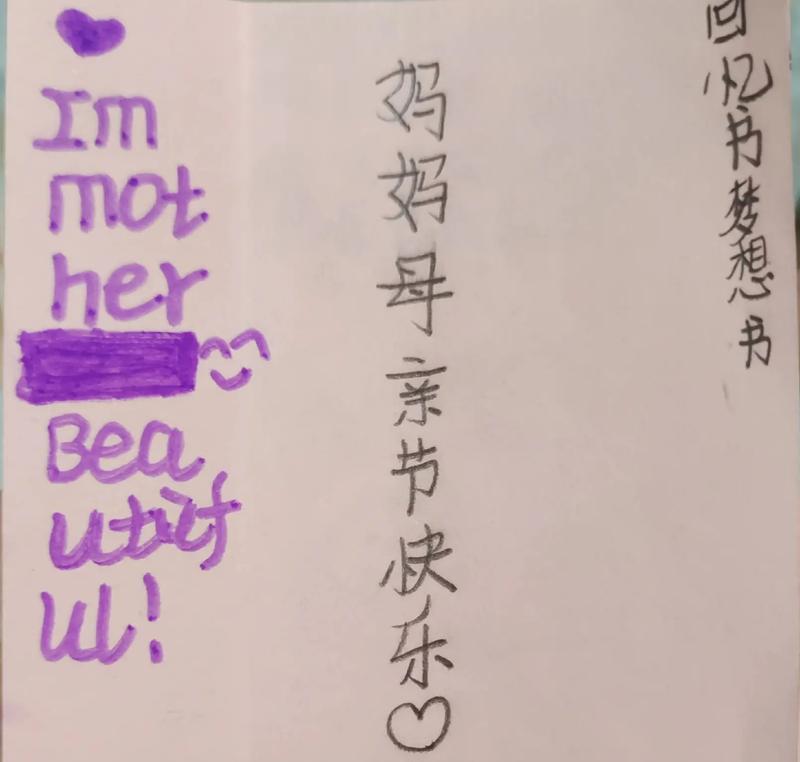 Im
mot
her
Bea
utif
ul!
妈妈母亲节快乐
回忆书梦想书